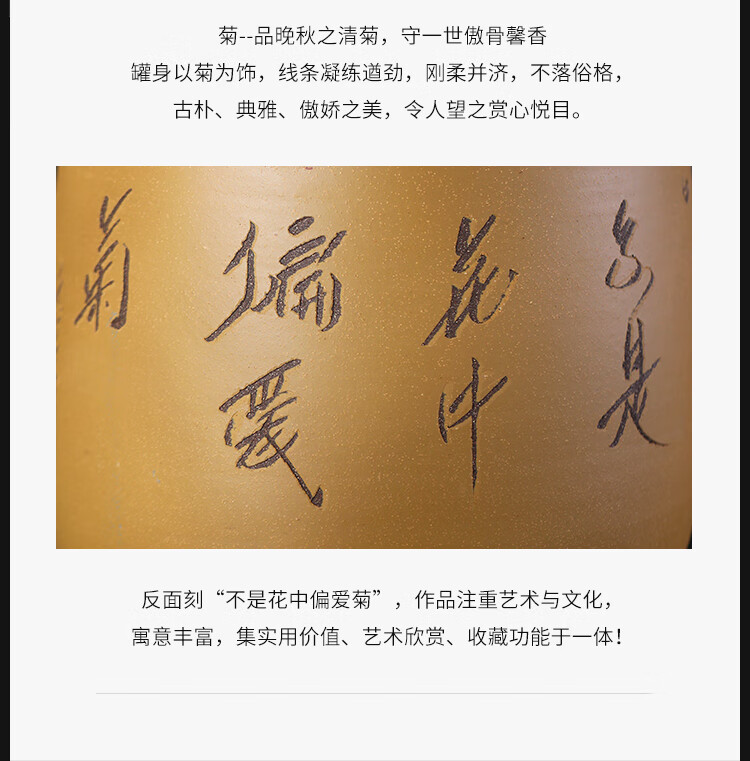 菊--品晚秋之清菊，守一世傲骨馨香
罐身以菊为饰，线条凝练遒劲，刚柔并济，不落俗格，
古朴、典雅、傲娇之美，令人望之赏心悦目。
不是
花中
偏爱
菊
反面刻“不是花中偏爱菊”，作品注重艺术与文化，
寓意丰富，集实用价值、艺术欣赏、收藏功能于一体！